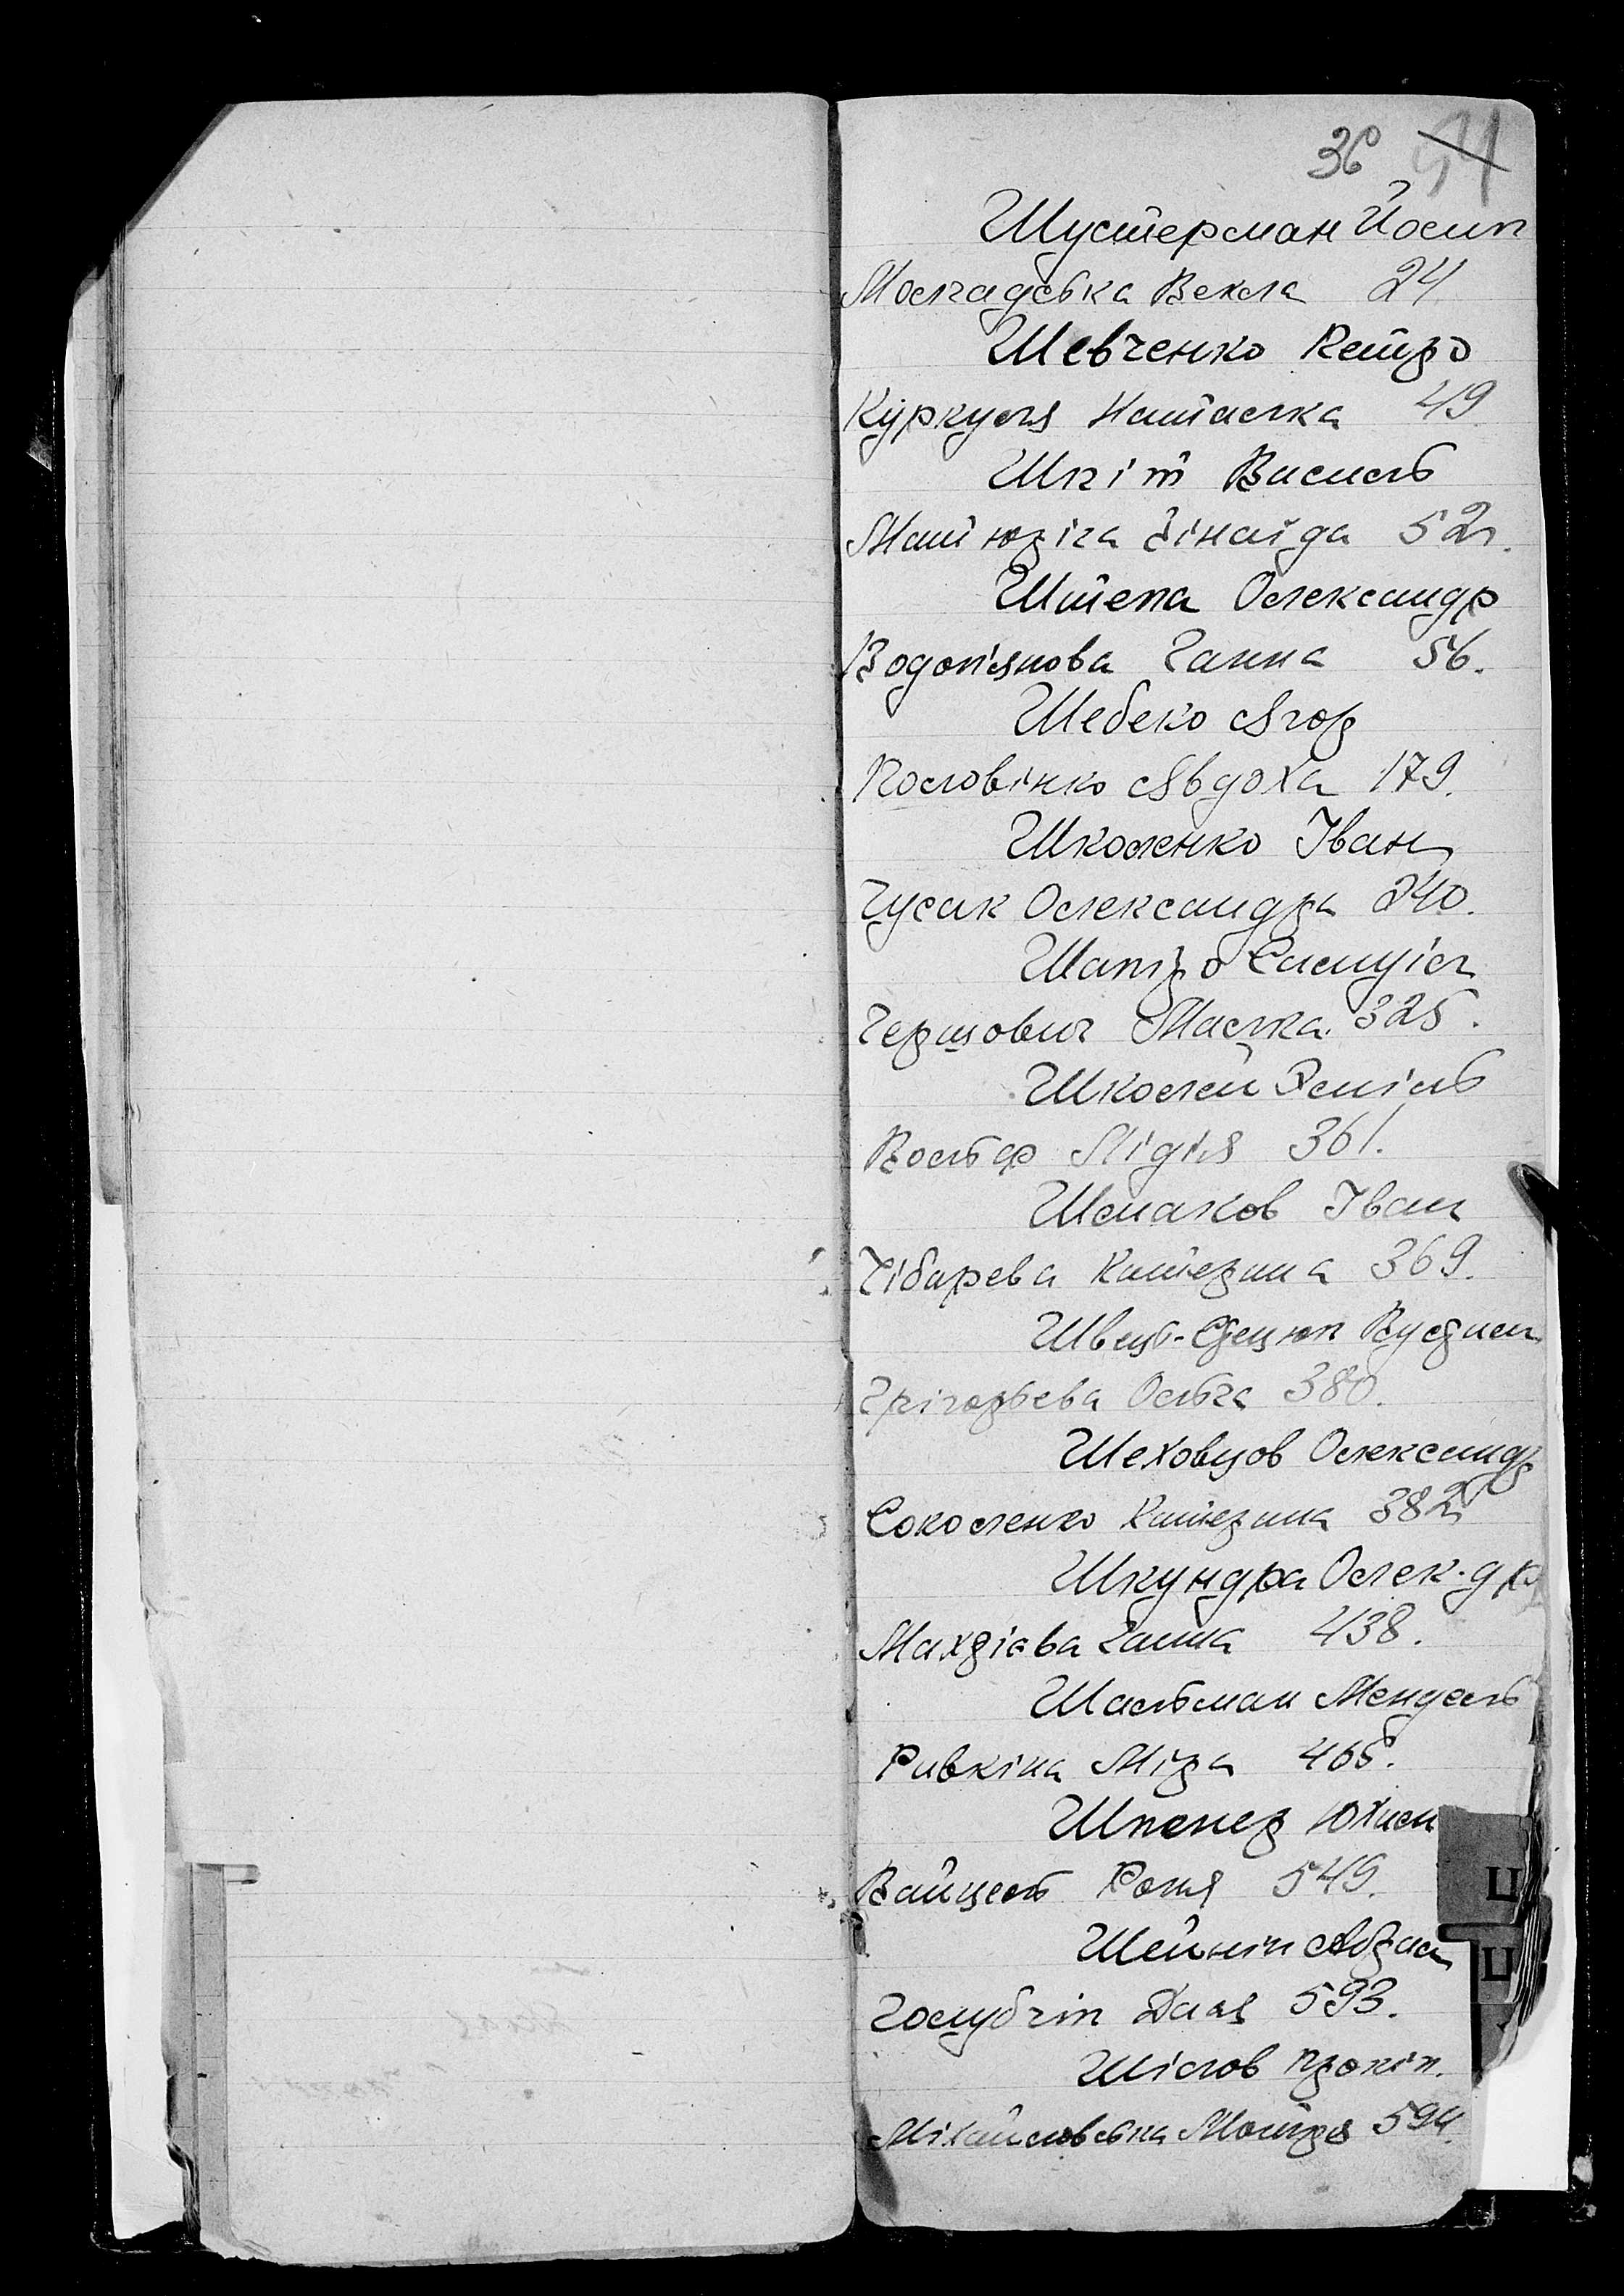 36 94
Шустерман Йосип
Молчадська Векла 24
Шевченко Петро
Куркуля Наталка 49
Шкіт Василь
Мат юріна Зінаїда 52.
Штепа Олександр
Водоп'янова Ганна 56.
Шебеко Єгор
Половінко Євдоха 179.
Школенко Іван
Гусак Олександра 240.
Шапіро Самуіл
Гершович Малка 325.
Школей Деміль
Вольф Лідія 361.
Шмаков Іван
Гібарева Катерина 369.
Швець-
Грігорьева Ольга 380.
Шеховцов Олександр
Соколенко Катерина 382
Шкундра Олек.др
Махрієва Ганна 438.
Шальман Мендель
Ривкіна Міра 465.
Шпенер Юхим
Вайцель Роня 549.
Шейнін Абрам
Голубчін 593.
Шілов Прокіп.
Міхайловська Мотря 594.